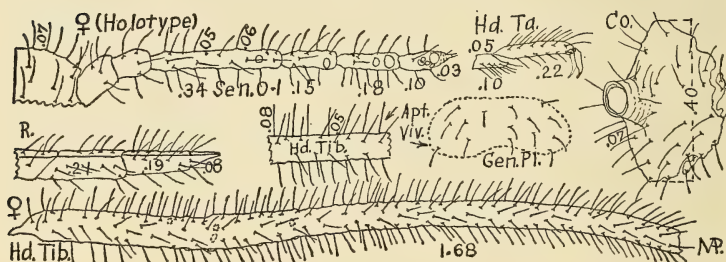 ♀ (Holotype)
.07 .05 .06
.34 Sen. 0-1 .15 .18 .10 .03
Hd. Ta.
.05
.10 .22
Co.
.40
.07
R.
.19 .08
.08 .05
Hd. Tib.
Apt.
Viv.
Gen. Pl.
♀
Hd. Tib.
1.68